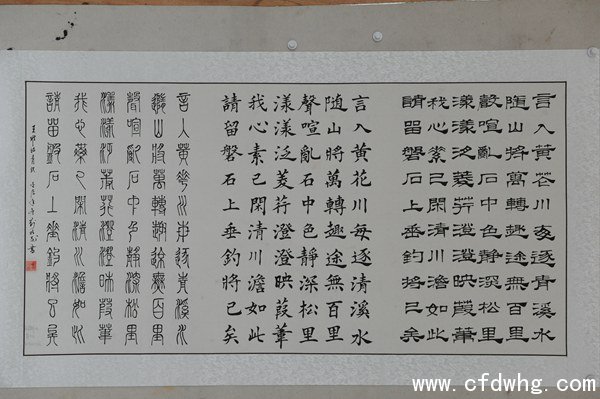 言入黃花川每逐青溪水
随山將萬轉趣途無百里
聲喧亂石中色靜深松里
漾漾泛菱荇澄澄映葭葦
我心素已閑清川澹如此
請留磐石上垂釣將已矣
言入黃花川每逐清溪水
随山將萬轉趣途無百里
聲喧亂石中色靜深松里
漾漾泛菱荇澄澄映葭葦
我心素已閑清川澹如此
請留磐石上垂釣將已矣
言入黃華川每逐青溪水
隨山將萬轉趣途無百里
聲喧亂石中色靜深松里
漾漾泛菱荇澄澄映葭葦
我心素已閑清川澹如此
請留磐石上垂釣將已矣
王維詩青溪
www.cfdwhg.com